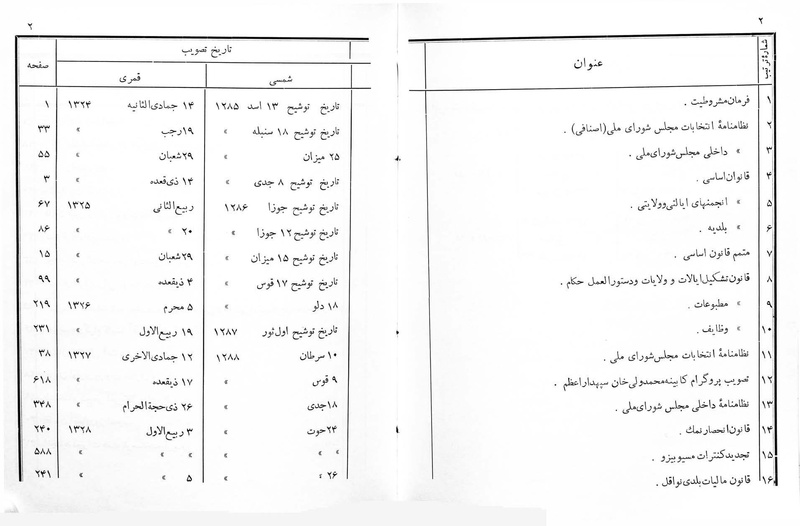 ۲
شمارهٔ ترتیب
عنوان
۱ فرمان مشروطیت .
۲ نظامنامهٔ انتخابات مجلس شورای ملی (اصنافی) .
۳ » داخلی مجلس شورای ملی .
۴ قانون اساسی .
۵ » انجمنهای ایالتی وولایتی .
۶ » بلدیه .
۷ متمم قانون اساسی .
۸ قانون تشکیل ایالات و ولایات ودستورالعمل حکام .
۹ » مطبوعات .
۱۰ » وظایف .
۱۱ نظامنامهٔ انتخابات مجلس شورای ملی .
۱۲ تصویب پروگرام کابینه محمدولی خان سپهدار اعظم .
۱۳ نظامنامهٔ داخلی مجلس شورای ملی .
۱۴ قانون انحصار نمك .
۱۵ تجدید کنترات مسیو بیزو .
۱۶ قانون مالیات بلدی نواقل .
۲
تاریخ تصویب
صفحه
شمسی قمری
تاریخ توشیح ۱۳ اسد ۱۲۸۵ ۱۴ جمادی الثانیه ۱۳۲۴ ۱
تاریخ توشیح ۱۸ سنبله » ۱۹ رجب » ۳۳
۲۵ میزان » ۲۹ شعبان » ۵۵
تاریخ توشیح ۸ جدی » ۱۴ ذیقعده » ۳
تاریخ توشیح جوزا ۱۲۸۶ ربیع الثانی ۱۳۲۵ ۶۷
تاریخ توشیح ۱۲ جوزا » ۲۰ » » ۸۶
تاریخ توشیح ۱۵ میزان » ۲۹ شعبان » ۱۵
تاریخ توشیح ۱۷ قوس » ۴ ذیقعده » ۹۹
۱۸ دلو » ۵ محرم ۱۳۲۶ ۲۱۹
تاریخ توشیح اول ثور ۱۲۸۷ ۱۹ ربیع الاول » ۲۳۱
۱۰ سرطان ۱۲۸۸ ۱۲ جمادی الاخری ۱۳۲۷ ۳۸
۹ قوس » ۱۷ ذیقعده » ۶۱۸
۱۸ جدی » ۲۶ ذی حجة الحرام » ۳۴۸
۲۴ حوت » ۳ ربیع الاول ۱۳۲۸ ۲۴۰
» » » » » ۵۸۸
۲۶ » » ۵ » » ۲۴۱